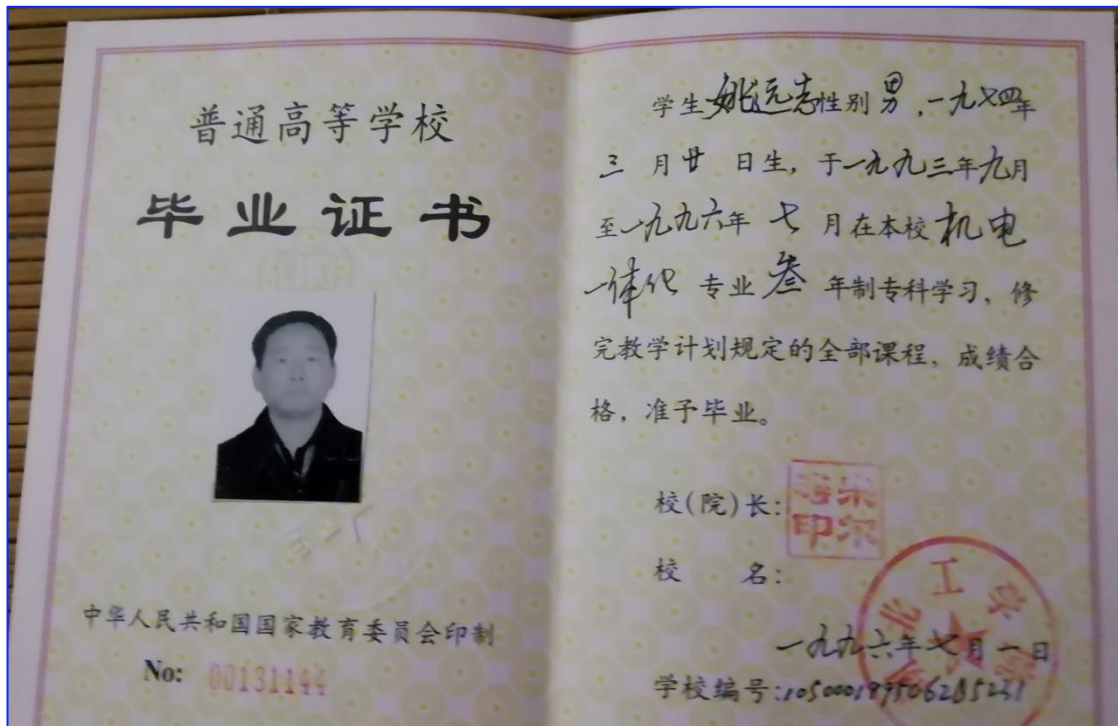 普通高等学校
毕业证书
中华人民共和国国家教育委员会印制
No: 00131144
学生姚远志性别男，一九七四年
三月廿日生，于一九九三年九月
至一九九六年七月在本校机电
一体化专业叁年制专科学习，修
完教学计划规定的全部课程，成绩合
格，准予毕业。
校(院)长:
校名:
北工
一九九六年七月一日
学校编号: